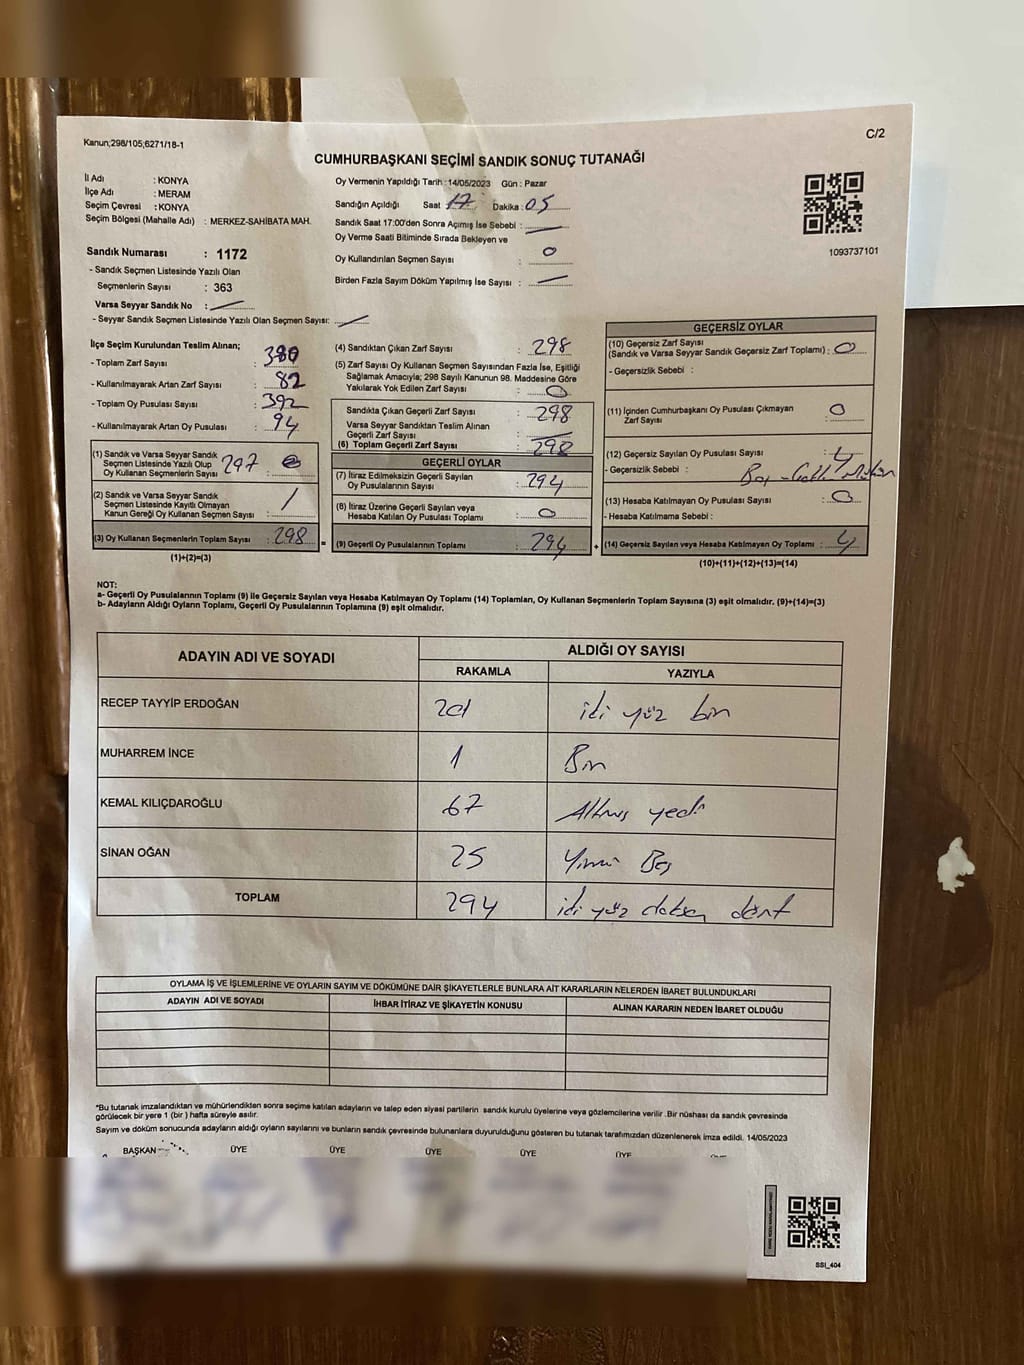 Kanun;298/105;6271/18-1
C/2
CUMHURBAŞKANI SEÇİMİ SANDIK SONUÇ TUTANAĞI
İl Adı : KONYA
İlçe Adı : MERAM
Seçim Çevresi : KONYA
Seçim Bölgesi (Mahalle Adı) : MERKEZ-SAHİBATA MAH.
Sandık Numarası : 1172
- Sandık Seçmen Listesinde Yazılı Olan
Seçmenlerin Sayısı : 363
Varsa Seyyar Sandık No :
- Seyyar Sandık Seçmen Listesinde Yazılı Olan Seçmen Sayısı:
Oy Vermenin Yapıldığı Tarih : 14/05/2023 Gün : Pazar
Sandığın Açıldığı Saat 17 Dakika : 05
Sandık Saat 17:00'den Sonra Açımış İse Sebebi :
Oy Verme Saati Bitiminde Sırada Bekleyen ve
Oy Kullandırılan Seçmen Sayısı : 0
Birden Fazla Sayım Döküm Yapılmış İse Sayısı :
1093737101
İlçe Seçim Kurulundan Teslim Alınan;
- Toplam Zarf Sayısı : 380
- Kullanılmayarak Artan Zarf Sayısı : 82
- Toplam Oy Pusulası Sayısı : 392
- Kullanılmayarak Artan Oy Pusulası : 94
(1) Sandık ve Varsa Seyyar Sandık
Seçmen Listesinde Yazılı Olup
Oy Kullanan Seçmenlerin Sayısı : 297
(2) Sandık ve Varsa Seyyar Sandık
Seçmen Listesinde Kayıtlı Olmayan
Kanun Gereği Oy Kullanan Seçmen Sayısı : 1
(3) Oy Kullanan Seçmenlerin Toplam Sayısı : 298
(1)+(2)=(3)
=
(4) Sandıktan Çıkan Zarf Sayısı : 298
(5) Zarf Sayısı Oy Kullanan Seçmen Sayısından Fazla İse, Eşitliği
Sağlamak Amacıyla; 298 Sayılı Kanunun 98. Maddesine Göre
Yakılarak Yok Edilen Zarf Sayısı : 0
Sandıkta Çıkan Geçerli Zarf Sayısı : 298
Varsa Seyyar Sandıktan Teslim Alınan
Geçerli Zarf Sayısı :
(6) Toplam Geçerli Zarf Sayısı : 298
GEÇERLİ OYLAR
(7) İtiraz Edilmeksizin Geçerli Sayılan
Oy Pusulalarının Sayısı : 294
(8) İtiraz Üzerine Geçerli Sayılan veya
Hesaba Katılan Oy Pusulası Toplamı : 0
(9) Geçerli Oy Pusulalarının Toplamı : 294
+
GEÇERSİZ OYLAR
(10) Geçersiz Zarf Sayısı
(Sandık ve Varsa Seyyar Sandık Geçersiz Zarf Toplamı) : 0
- Geçersizlik Sebebi :
(11) İçinden Cumhurbaşkanı Oy Pusulası Çıkmayan
Zarf Sayısı : 0
(12) Geçersiz Sayılan Oy Pusulası Sayısı : 4
- Geçersizlik Sebebi : Boş
(13) Hesaba Katılmayan Oy Pusulası Sayısı : 0
- Hesaba Katılmama Sebebi :
(14) Geçersiz Sayılan veya Hesaba Katılmayan Oy Toplamı : 4
(10)+(11)+(12)+(13)=(14)
NOT:
a- Geçerli Oy Pusulalarının Toplamı (9) ile Geçersiz Sayılan veya Hesaba Katılmayan Oy Toplamı (14) Toplamları, Oy Kullanan Seçmenlerin Toplam Sayısına (3) eşit olmalıdır. (9)+(14)=(3)
b- Adayların Aldığı Oyların Toplamı, Geçerli Oy Pusulalarının Toplamına (9) eşit olmalıdır.
ADAYIN ADI VE SOYADI
ALDIĞI OY SAYISI
RAKAMLA YAZIYLA
RECEP TAYYİP ERDOĞAN 201 iki yüz bin
MUHARREM İNCE 1 Bin
KEMAL KILIÇDAROĞLU 67 Altmış yedi
SİNAN OĞAN 25 Yirmi Beş
TOPLAM 294 iki yüz doksan dört
OYLAMA İŞ VE İŞLEMLERİNE VE OYLARIN SAYIM VE DÖKÜMÜNE DAİR ŞİKAYETLERLE BUNLARA AİT KARARLARIN NELERDEN İBARET BULUNDUKLARI
ADAYIN ADI VE SOYADI İHBAR İTİRAZ VE ŞİKAYETİN KONUSU ALINAN KARARIN NEDEN İBARET OLDUĞU
*Bu tutanak imzalandıktan ve mühürlendikten sonra seçime katılan adayların ve talep eden siyasi partilerin sandık kurulu üyelerine veya gözlemcilerine verilir .Bir nüshası da sandık çevresinde
görülecek bir yere 1 (bir ) hafta süreyle asılır.
Sayım ve döküm sonucunda adayların aldığı oyların sayılarını ve bunların sandık çevresinde bulunanlara duyurulduğunu gösteren bu tutanak tarafımızdan düzenlenerek imza edildi. 14/05/2023
BAŞKAN ÜYE ÜYE ÜYE ÜYE ÜYE
SSI_404